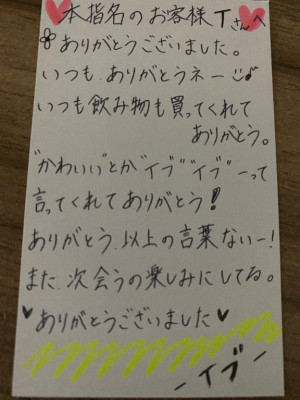 ♥本指名のお客様Tさんへ♥
ありがとうございました。
いつも、ありがとうネー☺♪
いつも飲み物も買ってくれて
ありがとう。
"かわいい"とか"イブ""イブ"ーって
言ってくれてありがとう!
ありがとう、以上の言葉ないー!
また、次会うの楽しみにしてる。
♥ありがとうございました♥
ーイブー